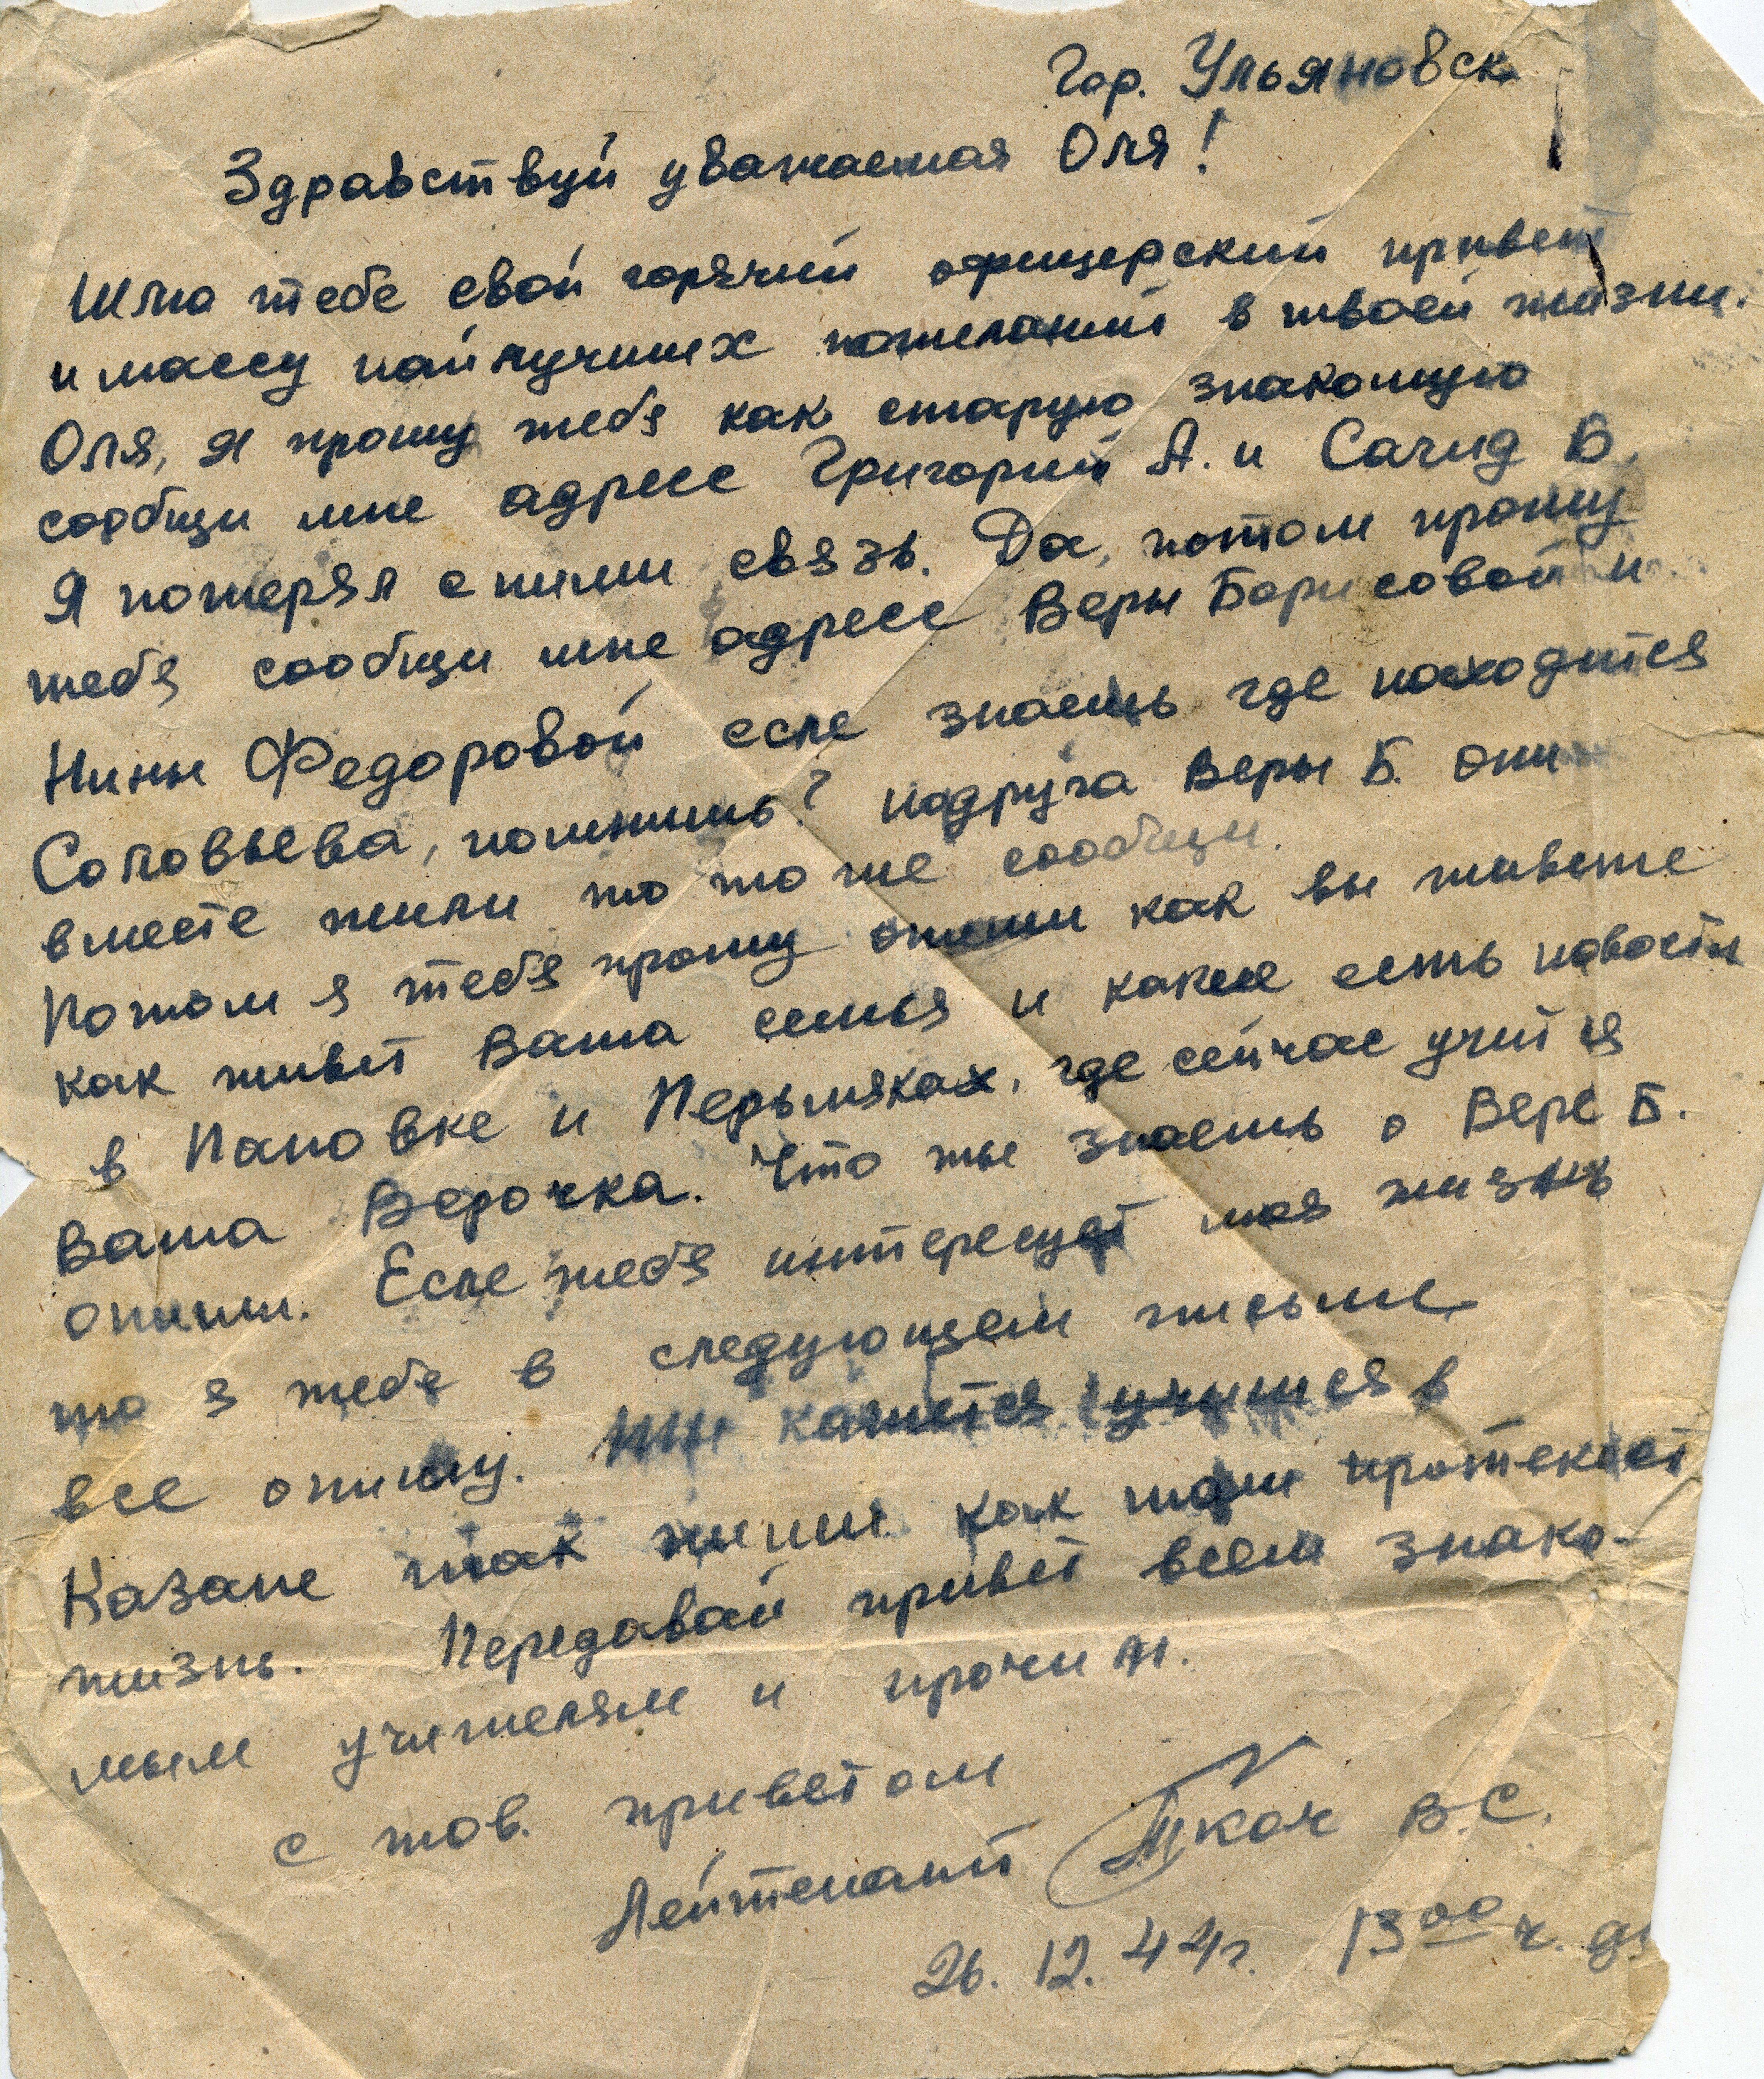 Гор. Ульяновск
Здравствуй уважаемая Оля!
Шлю тебе свой горячий офицерский привет
и массу найлучших пожеланий в твоей жизни.
Оля, я прошу тебя как старую знакомую
сообщи мне адресс Григорий А. и Сагид Б.
Я потерял с ними связь. Да, потом прошу
тебя сообщи мне адресс Веры Борисовой и
Нины Федоровой если знаешь где находится
Соловьева, помнишь? подруга Веры Б. они
вместе жили то тоже сообщи.
Потом я тебя прошу опиши как вы живете
как живет Ваша семья и какие есть новости
в Пановке и Перьмяках, где сейчас учится
Ваша Верочка. Что ты знаешь о Вере Б.
опиши. Если тебя интересует моя жизнь
то я тебе в следующем письме
все опишу. Ты кажется учишся в
Казане так пиши как там протекает
жизнь. Передавай привет всем знако-
мым учителям и прочим.
с тов. приветом
Лейтенант Ткач В.С.
26.12.44г. 13⁰⁰ ч. д.